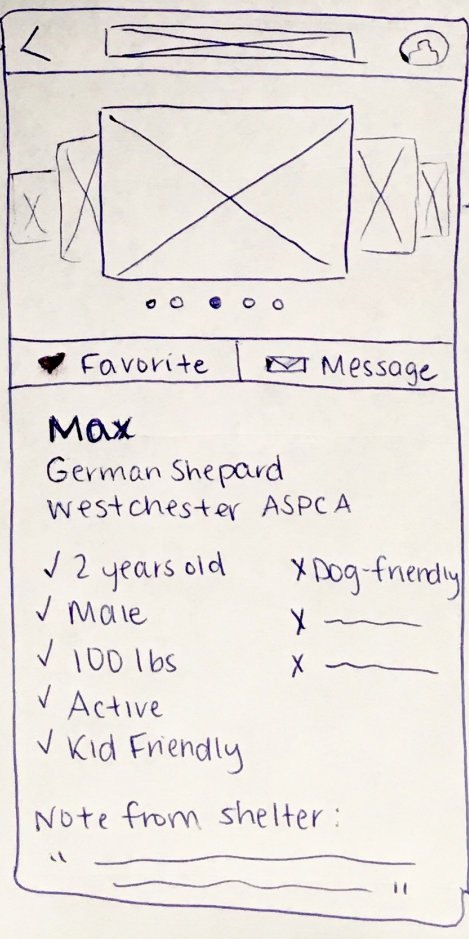 Favorite
Message
Max
German Shepard
Westchester ASPCA
✓ 2 years old
✓ Male
✓ 100 lbs
✓ Active
✓ Kid Friendly
X Dog-friendly
X
X
Note from shelter:
" "